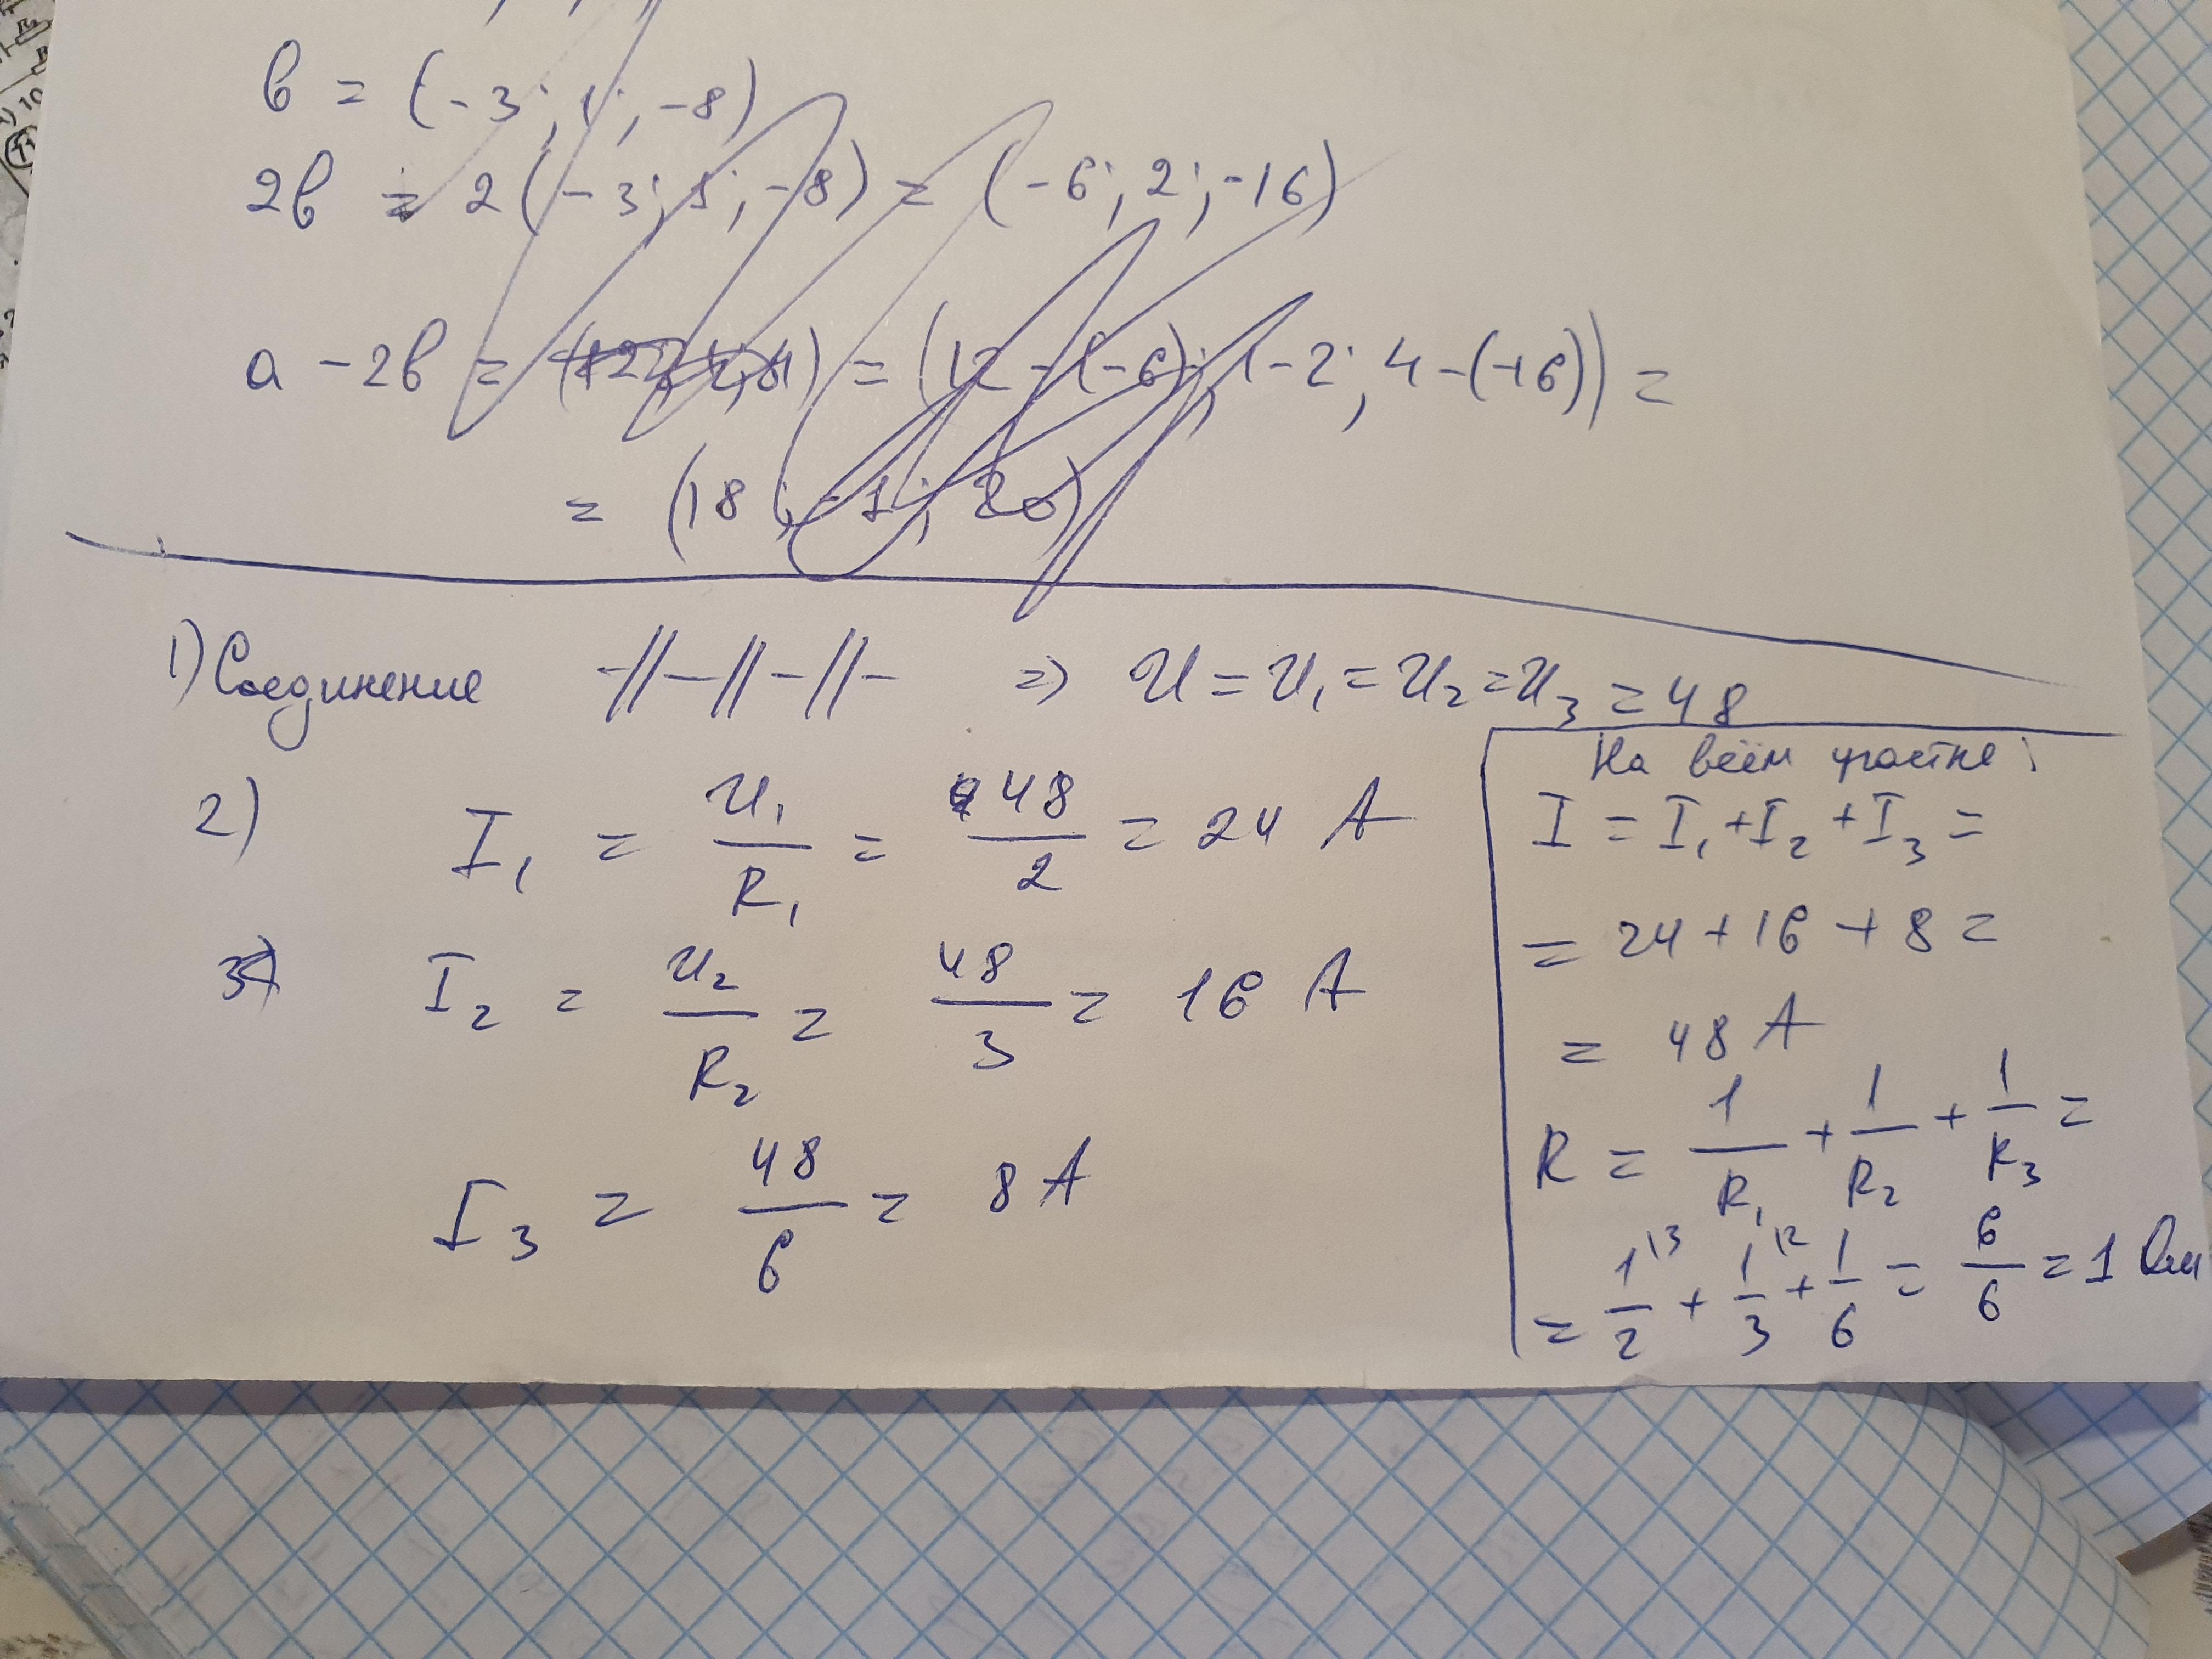 b = (-3; 1; -8)
2b = 2(-3; 1; -8) = (-6; 2; -16)
a - 2b = = (12-(-6); 1-2; 4-(-16)) =
= (18; -1; 20)
1) Соединение -//-//-//- => U = U₁ = U₂ = U₃ = 48
2) I₁ = U₁/R₁ = 48/2 = 24 A
3) I₂ = U₂/R₂ = 48/3 = 16 A
I₃ = 48/6 = 8 A
На всём участке:
I = I₁ + I₂ + I₃ =
= 24 + 16 + 8 =
= 48 A
R = 1/R₁ + 1/R₂ + 1/R₃ =
= 1\3/2 + 1\2/3 + 1/6 = 6/6 = 1 Ом